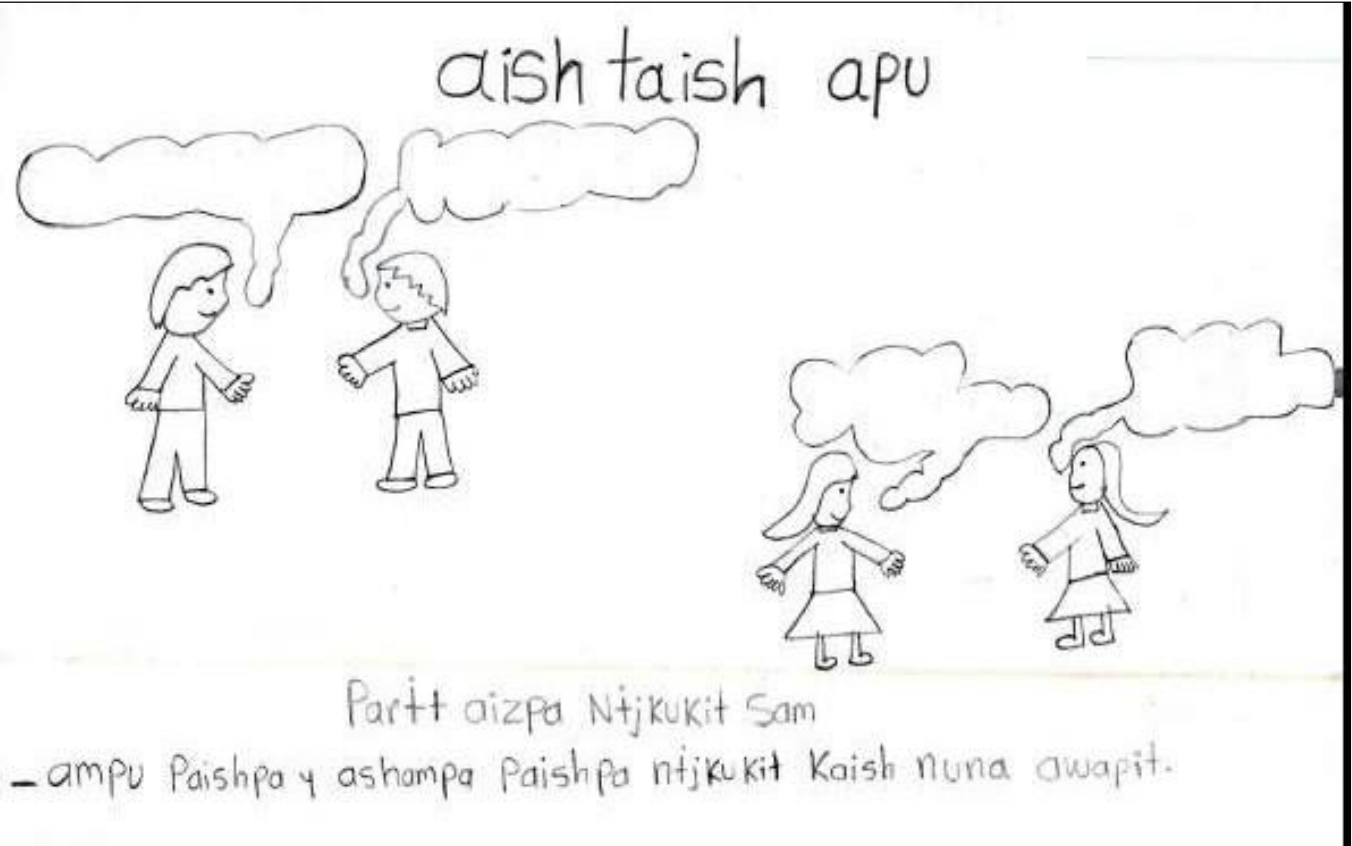 aishtaish apu
Partɨt aizpa Nɨjkukit Sam
- ampu Paishpa y ashampa Paishpa nɨjkukit Kaish nuna awapit.